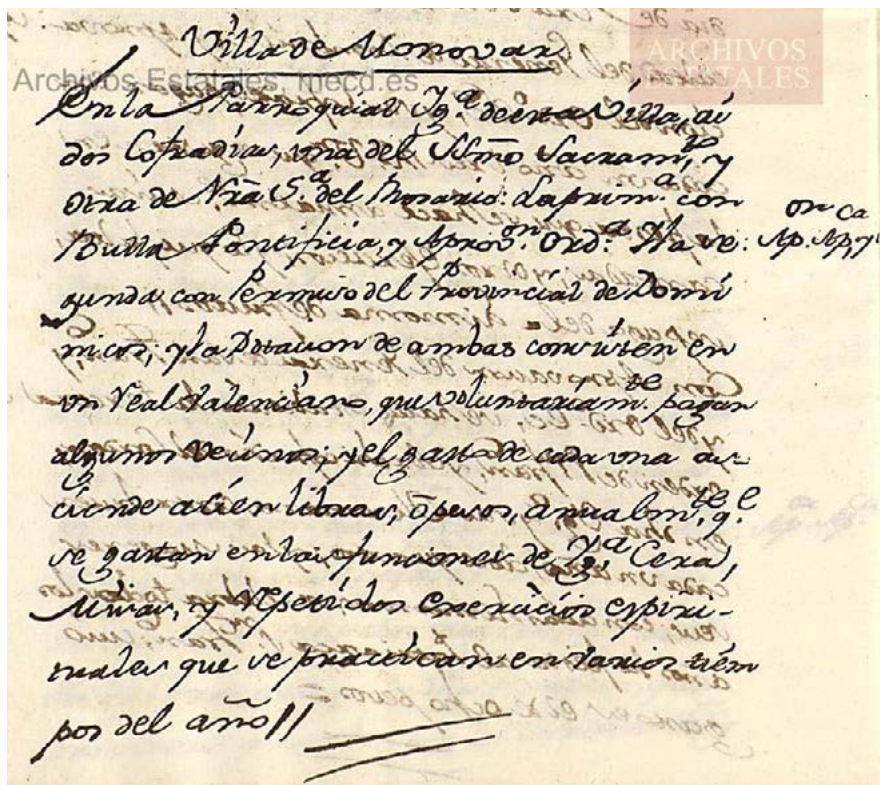 Villa de Monovar
ARCHIVOS
ESTATALES
Archivos Estatales, mecd.es
En la Parroquial Yg.ª de esta Villa, ai
dos Cofradías, una del SSmo Sacram.to, y
otra de Nrã S.ª del Rosario: La prim.ª con
Bulla Pontificia, y Aprov.on Ord.ª Yla se:
on ca
Ap. Ap, y
gunda con Permiso del Provincial de Domi
nicos; y la Dotacion de ambas consisten en
un Real Valenciano, que voluntariam.te pagan
algunos Vecinos; y el gasto de cada una as-
ciende a cien libras, ō pesos, anualm.te, q.e
se gastan en las funciones de Yg.ª Cera,
Misas, y repetidos exercicios espiri-
tuales que se practican en varios tiem
pos del año //